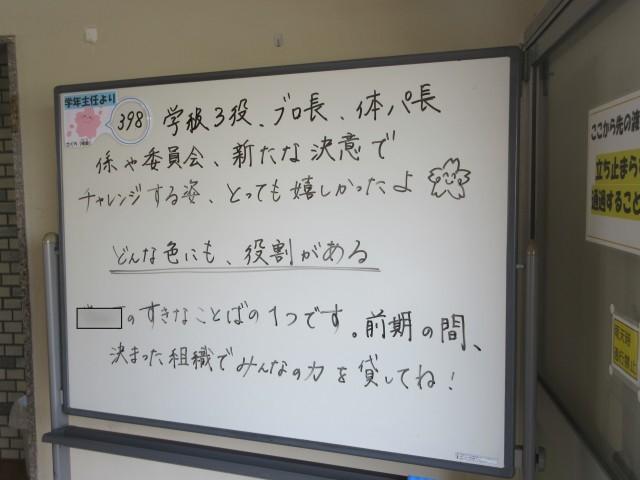 学年主任より
398
学級3役、ブロ長、体パ長
係や委員会、新たな決意で
チャレンジする姿、とっても嬉しかったよ
どんな色にも、役割がある
のすきなことばの1つです。前期の間、
決まった組織でみんなの力を貸してね!
ここから先の渡
立ち止まら
通過すること